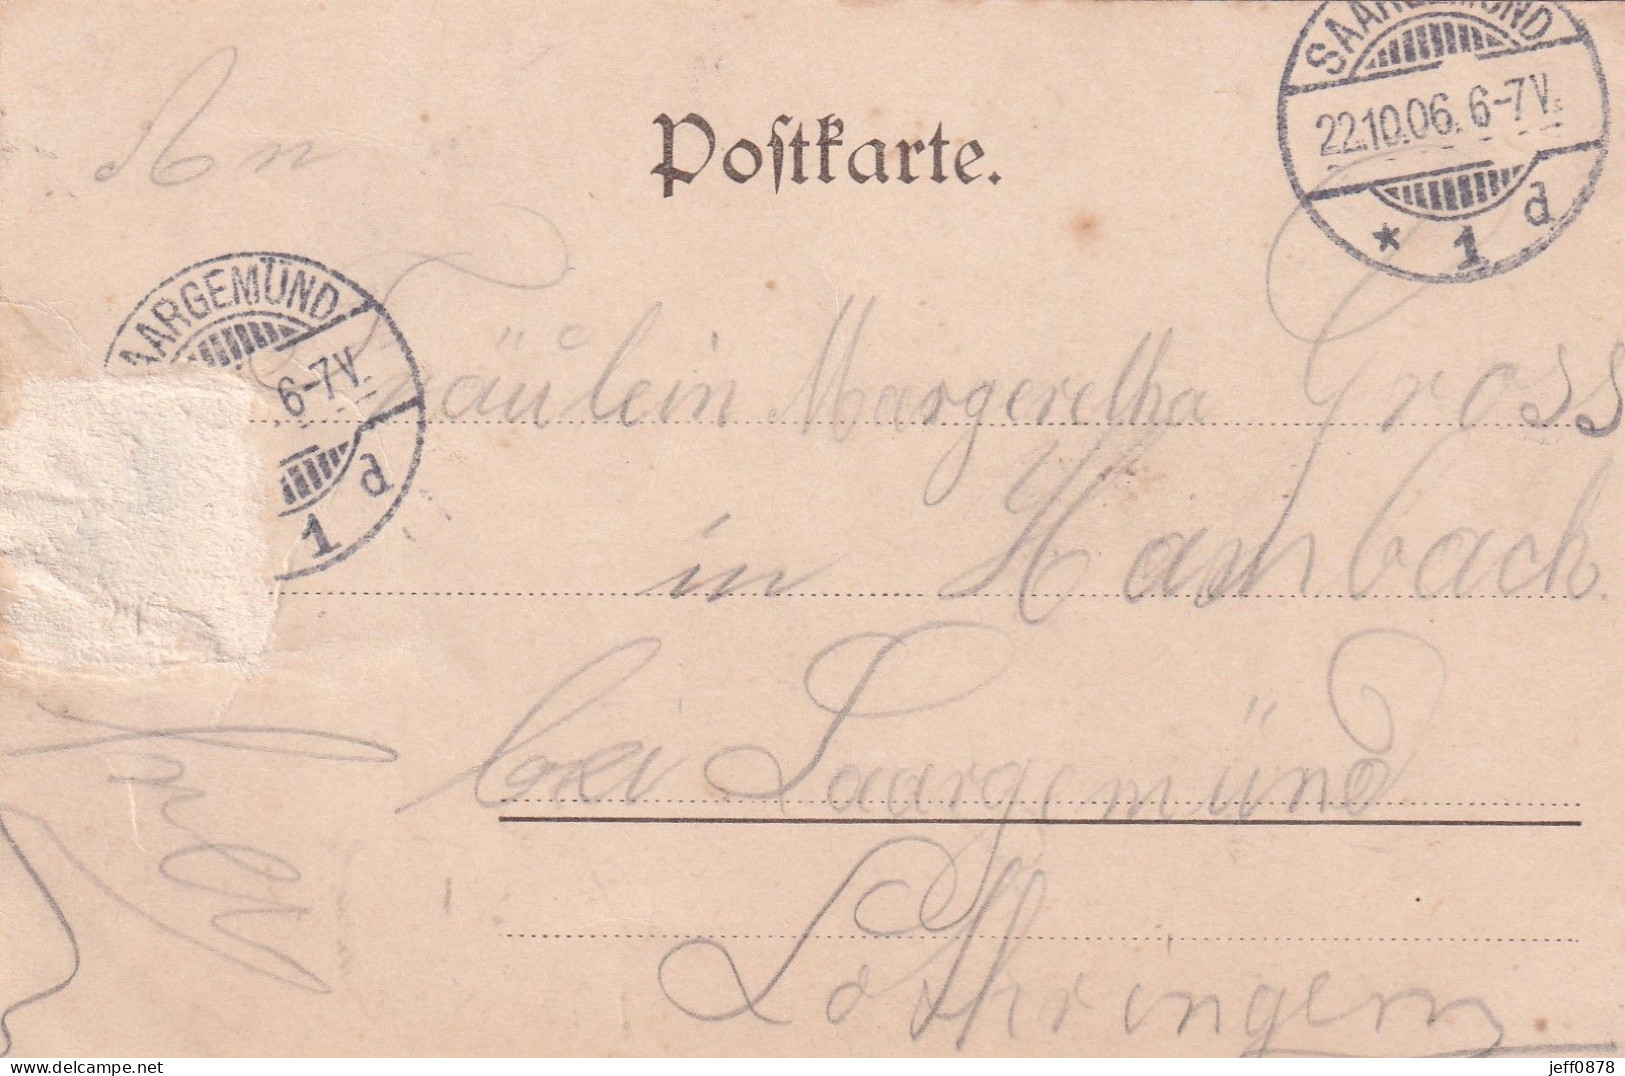 SAARGEMÜND
22.10.06. 6-7V.
* 1 d
Postkarte.
An
AARGEMÜND
6-7V.
1 d
Fräulein Margeretha Gross
in Hambach
bei Saargemünd
Lothringen
jeff0878